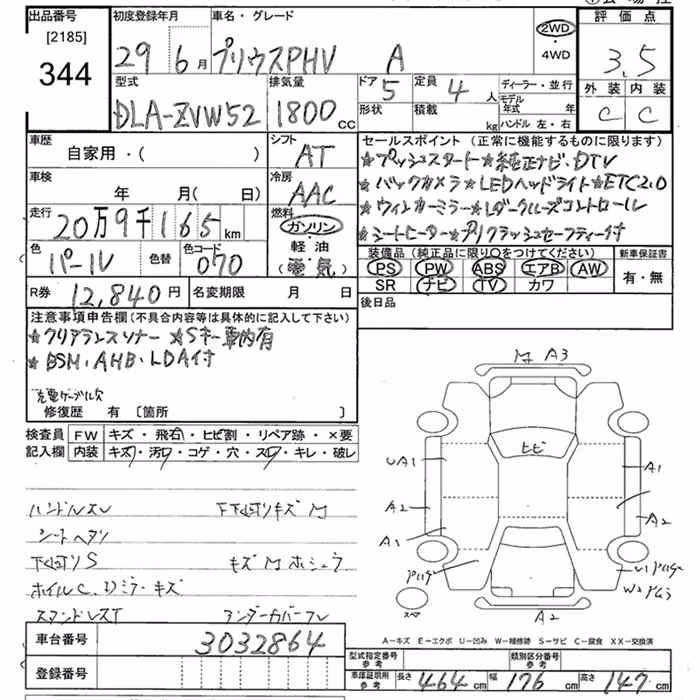 出品番号 初度登録年月 車名・グレード 評価点
[2185]
344 29 6月 プリウスPHV A 2WD・4WD 3.5
型式 排気量 ドア 5 定員 4人 ディーラー・並行 外装 内装
DLA-ZVW52 1800cc 形状 積載 kg モデル年式 年 C C
ハンドル 左・右
車歴 シフト セールスポイント (正常に機能するものに限ります)
自家用・( ) AT ★プッシュスタート★純正ナビ・DTV
車検 冷房 ★バックカメラ★LEDヘッドライト★ETC2.0
年 月(日) AAC ★ウィンカーミラー★レダークルーズコントロール
走行 燃料 ★シートヒーター★プリクラッシュセーフティー付
20万9千165km ガソリン
色 色替 色コード 軽油 装備品 (純正品に限り○をつけてください) 新車保証書
パール 070 (電気) PS PW ABS エアB AW 有・無
SR ナビ TV カワ
R券 12,840円 名変期限 月 日 後日品
注意事項申告欄(不具合内容等は具体的に記入して下さい)
★クリアランスソナー ★Sキー車内有
★BSM・AHB・LDA付
充電ケーブル欠
修復歴 有 [箇所 ]
検査員 FW キズ・飛石・ヒビ割・リペア跡・×要
記入欄 内装 キズ・汚・コゲ・穴・スレ・キレ・破レ
ハンドルスレ 下下回りキズM
シートヘタリ
下回りS キズM ホシュウ
ホイルC、Dミラーキズ
アンダーカバーワレ
M A3
ヒビ
UA1 A1
A2 A2
A1
A2
A-キズ E-エクボ U-凹み W-補修跡 S-サビ C-腐食 XX-交換済
車台番号 3032864
型式指定番号 参考 類別区分番号 参考
登録番号 車庫証明用 参考 長さ 464cm 幅 176cm 高さ 147cm